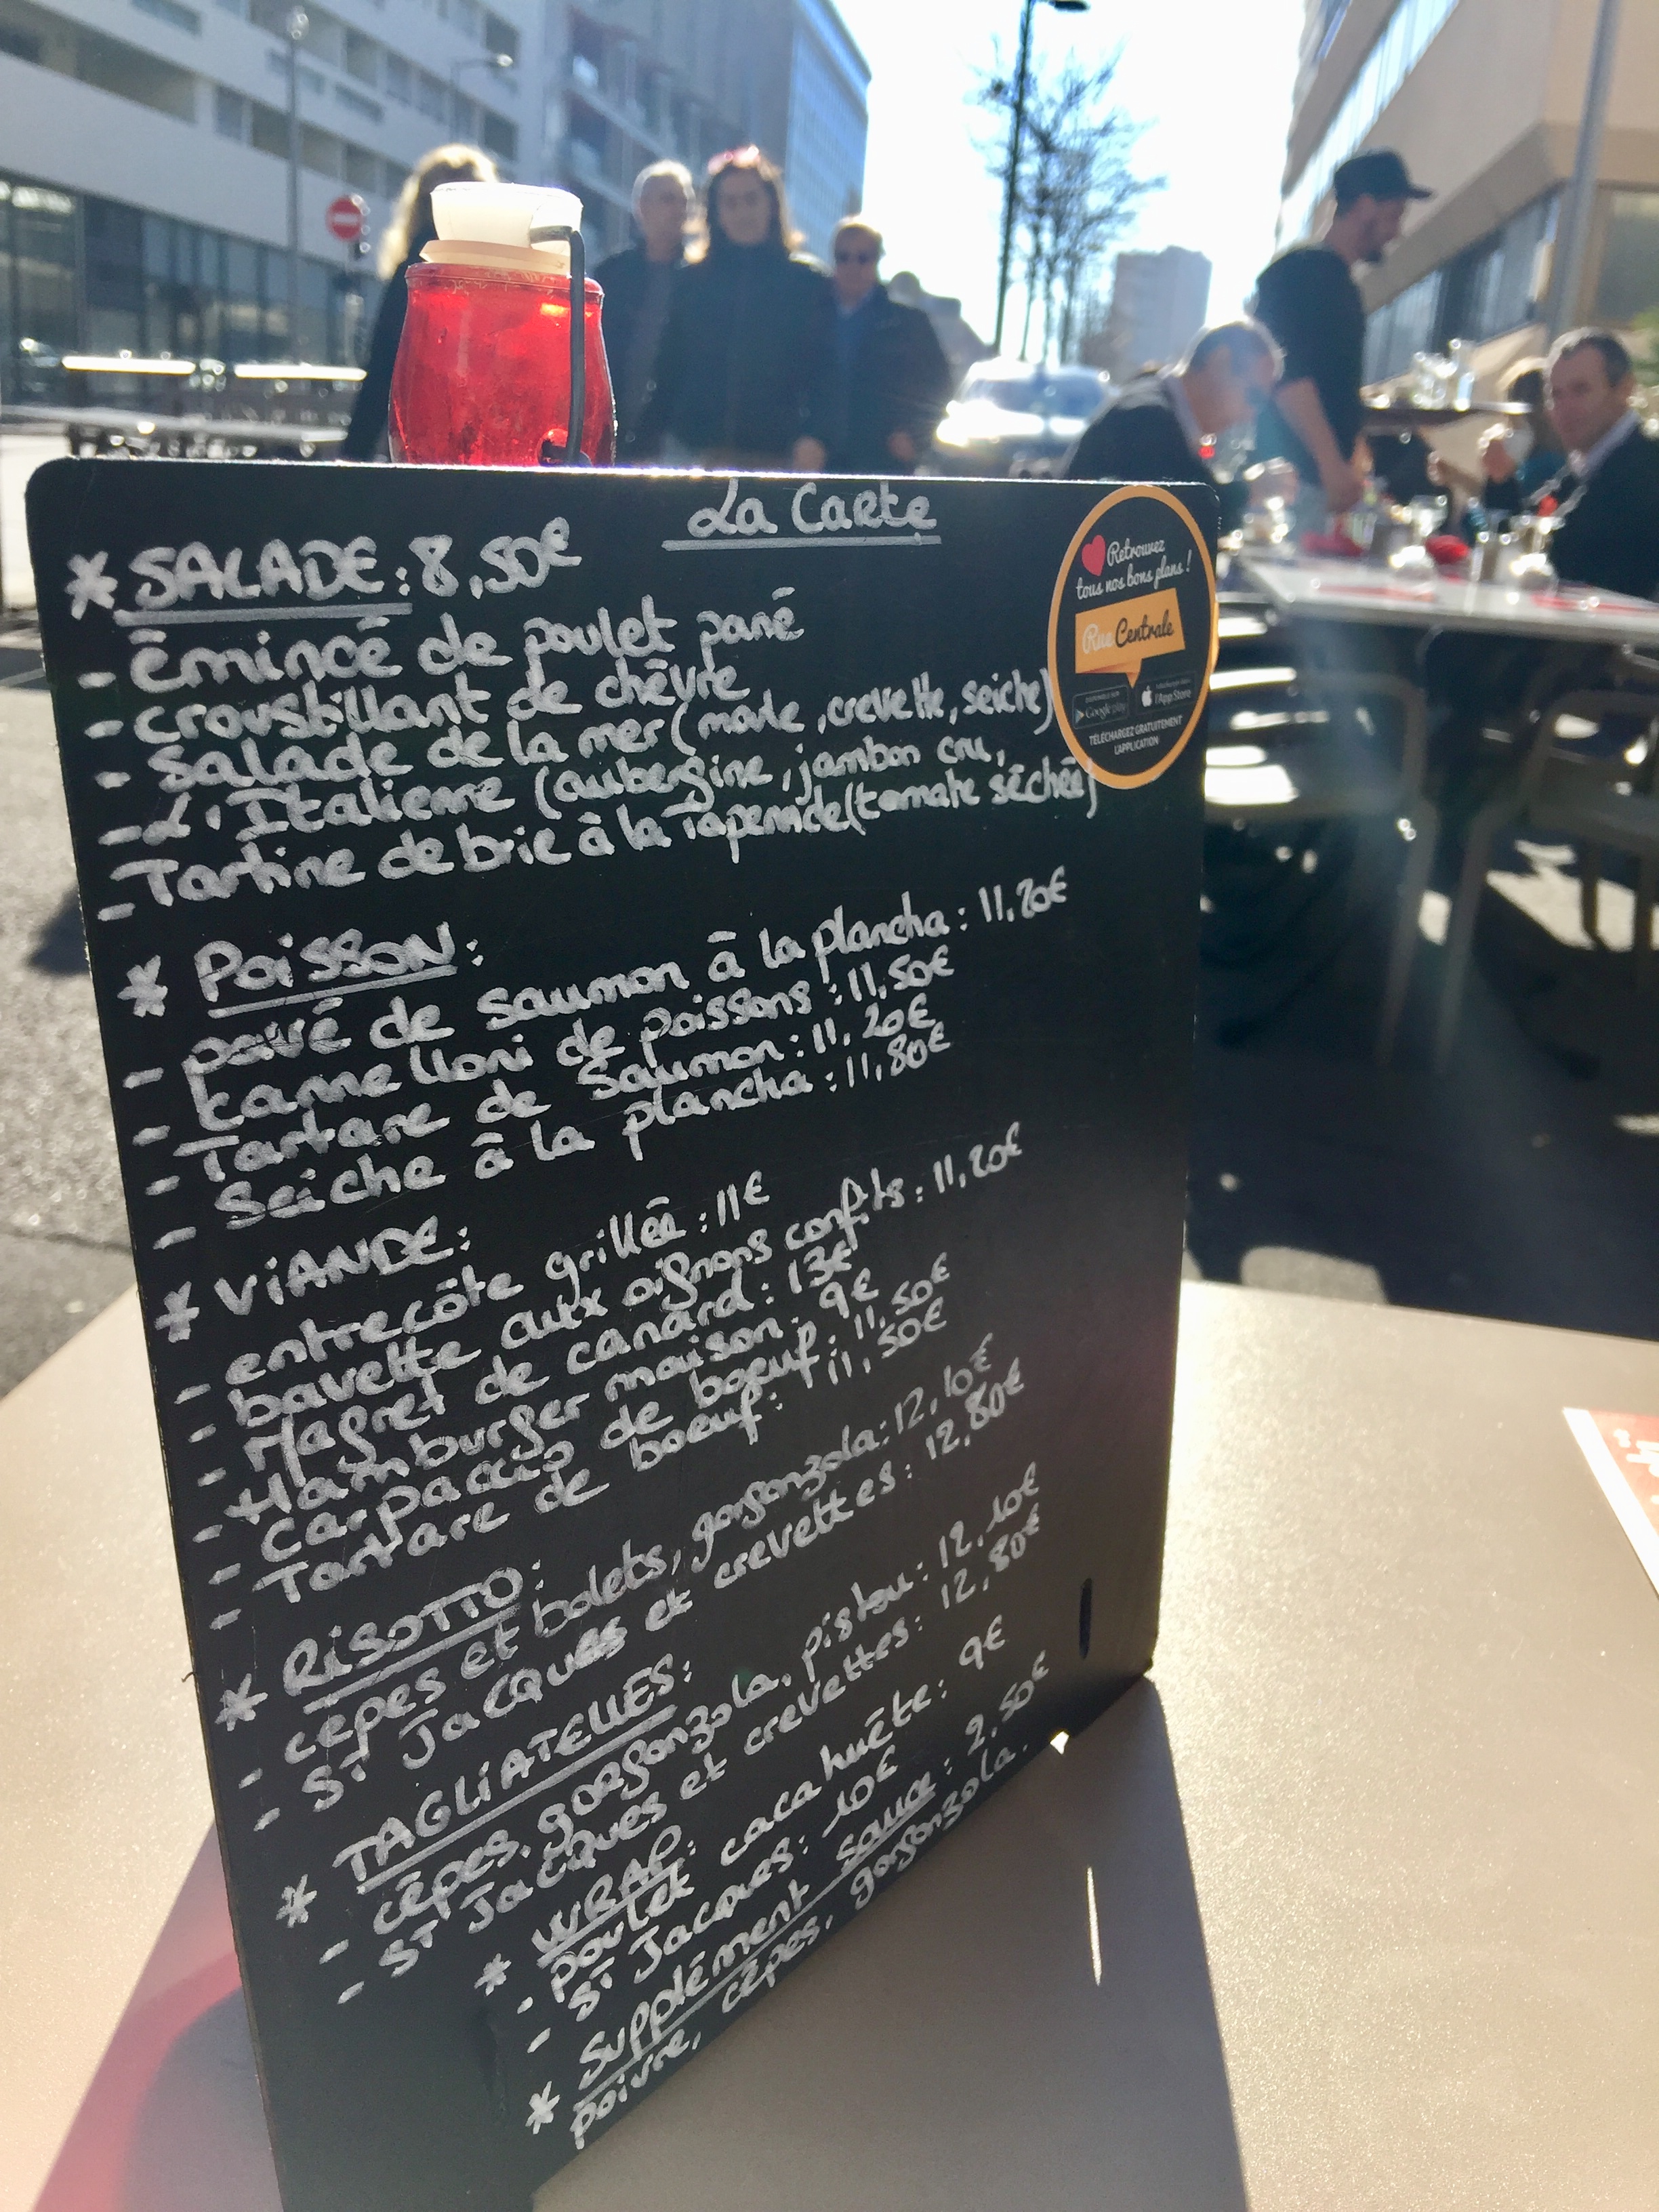 La Carte
* SALADE : 8,50€
- émincé de poulet pané
- croustillant de chèvre
- Salade de la mer (moule, crevette, seiche)
- L'Italienne (aubergine, jambon cru,
- Tartine de brie à la Tapenade (tomate séchée)
* POISSON :
- pavé de saumon à la plancha : 11,20€
- cannelloni de poissons : 11,50€
- Tartare de Saumon : 11,20€
- Seiche à la plancha : 11,80€
* VIANDE :
- entrecôte grillée : 11€
- bavette aux oignons confits : 11,20€
- Magret de canard : 13€
- Hamburger maison : 9€
- Carpaccio de boeuf : 11,50€
- Tartare de boeuf : 11,50€
* RISOTTO :
- cèpes et bolets, gorgonzola : 12,10€
- ST Jacques et crevettes : 12,80€
* TAGLIATELLES :
- cèpes, gorgonzola, pistou : 12,10€
- ST Jacques et crevettes : 12,80€
* WRAP :
- poulet cacahuète : 9€
- ST Jacques : 10€
* Supplément sauce : 2,50€
poivre, cèpes, gorgonzola.
Retrouvez
tous nos bons plans !
Rue Centrale
Google play
App Store
TÉLÉCHARGEZ GRATUITEMENT
L'APPLICATION